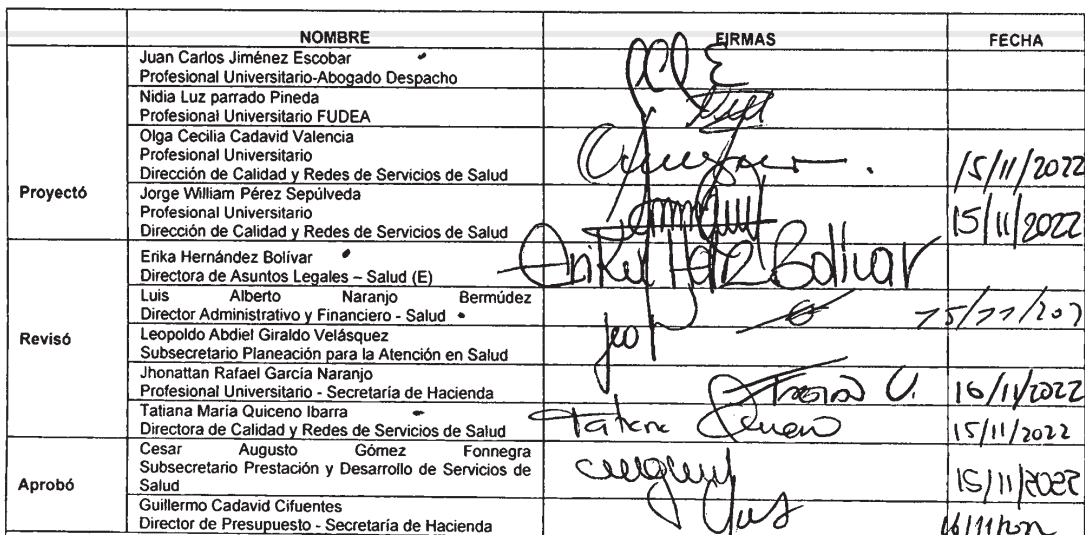 NOMBRE FIRMAS FECHA
Proyectó
Juan Carlos Jiménez Escobar
Profesional Universitario-Abogado Despacho
Nidia Luz parrado Pineda
Profesional Universitario FUDEA
Olga Cecilia Cadavid Valencia
Profesional Universitario
Dirección de Calidad y Redes de Servicios de Salud
15/11/2022
Jorge William Pérez Sepúlveda
Profesional Universitario
Dirección de Calidad y Redes de Servicios de Salud
15/11/2022
Revisó
Erika Hernández Bolívar
Directora de Asuntos Legales – Salud (E)
Erika Hdz Bolívar
Luis Alberto Naranjo Bermúdez
Director Administrativo y Financiero - Salud
15/11/202
Leopoldo Abdiel Giraldo Velásquez
Subsecretario Planeación para la Atención en Salud
Jhonattan Rafael García Naranjo
Profesional Universitario - Secretaría de Hacienda
16/11/2022
Tatiana María Quiceno Ibarra
Directora de Calidad y Redes de Servicios de Salud
Tatiana Quiceno
15/11/2022
Aprobó
Cesar Augusto Gómez Fonnegra
Subsecretario Prestación y Desarrollo de Servicios de
Salud
15/11/2022
Guillermo Cadavid Cifuentes
Director de Presupuesto - Secretaría de Hacienda
16/11/2022